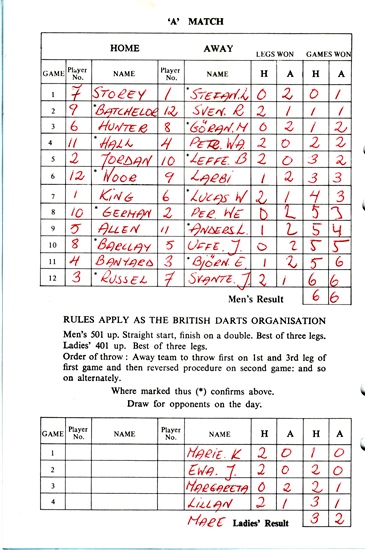 'A' MATCH
HOME AWAY LEGS WON GAMES WON
GAME Player No. NAME Player No. NAME H A H A
1 7 STOREY 1 *STEFAN.L 0 2 0 1
2 9 *BATCHELOR 12 SVEN. R 2 1 1 1
3 6 HUNTER 8 *GÖRAN.M 0 2 1 2
4 11 *HALL 4 PETR. WA 2 0 2 2
5 2 JORDAN 10 *LEFFE. B 2 0 3 2
6 12 *WOOR 9 LARBI 1 2 3 3
7 1 KING 6 *LUCAS W 2 1 4 3
8 10 *GERMAN 2 PER. WE 0 2 5 3
9 5 ALLEN 11 *ANDERS L 1 2 5 4
10 8 *BARCLAY 5 UFFE. J. 0 2 5 5
11 4 BANYARD 3 *BJÖRN E. 1 2 5 6
12 3 *RUSSEL 7 SVANTE. J 2 1 6 6
Men's Result 6 6
RULES APPLY AS THE BRITISH DARTS ORGANISATION
Men's 501 up. Straight start, finish on a double. Best of three legs.
Ladies' 401 up. Best of three legs.
Order of throw : Away team to throw first on 1st and 3rd leg of
first game and then reversed procedure on second game: and so
on alternately.
Where marked thus (*) confirms above.
Draw for opponents on the day.
GAME Player No. NAME Player No. NAME H A H A
1 MARIE. K 2 0 1 0
2 EWA. J. 2 0 2 0
3 MARGARETA 0 2 2 1
4 LILLAN 2 1 3 1
MARE Ladies' Result 3 2